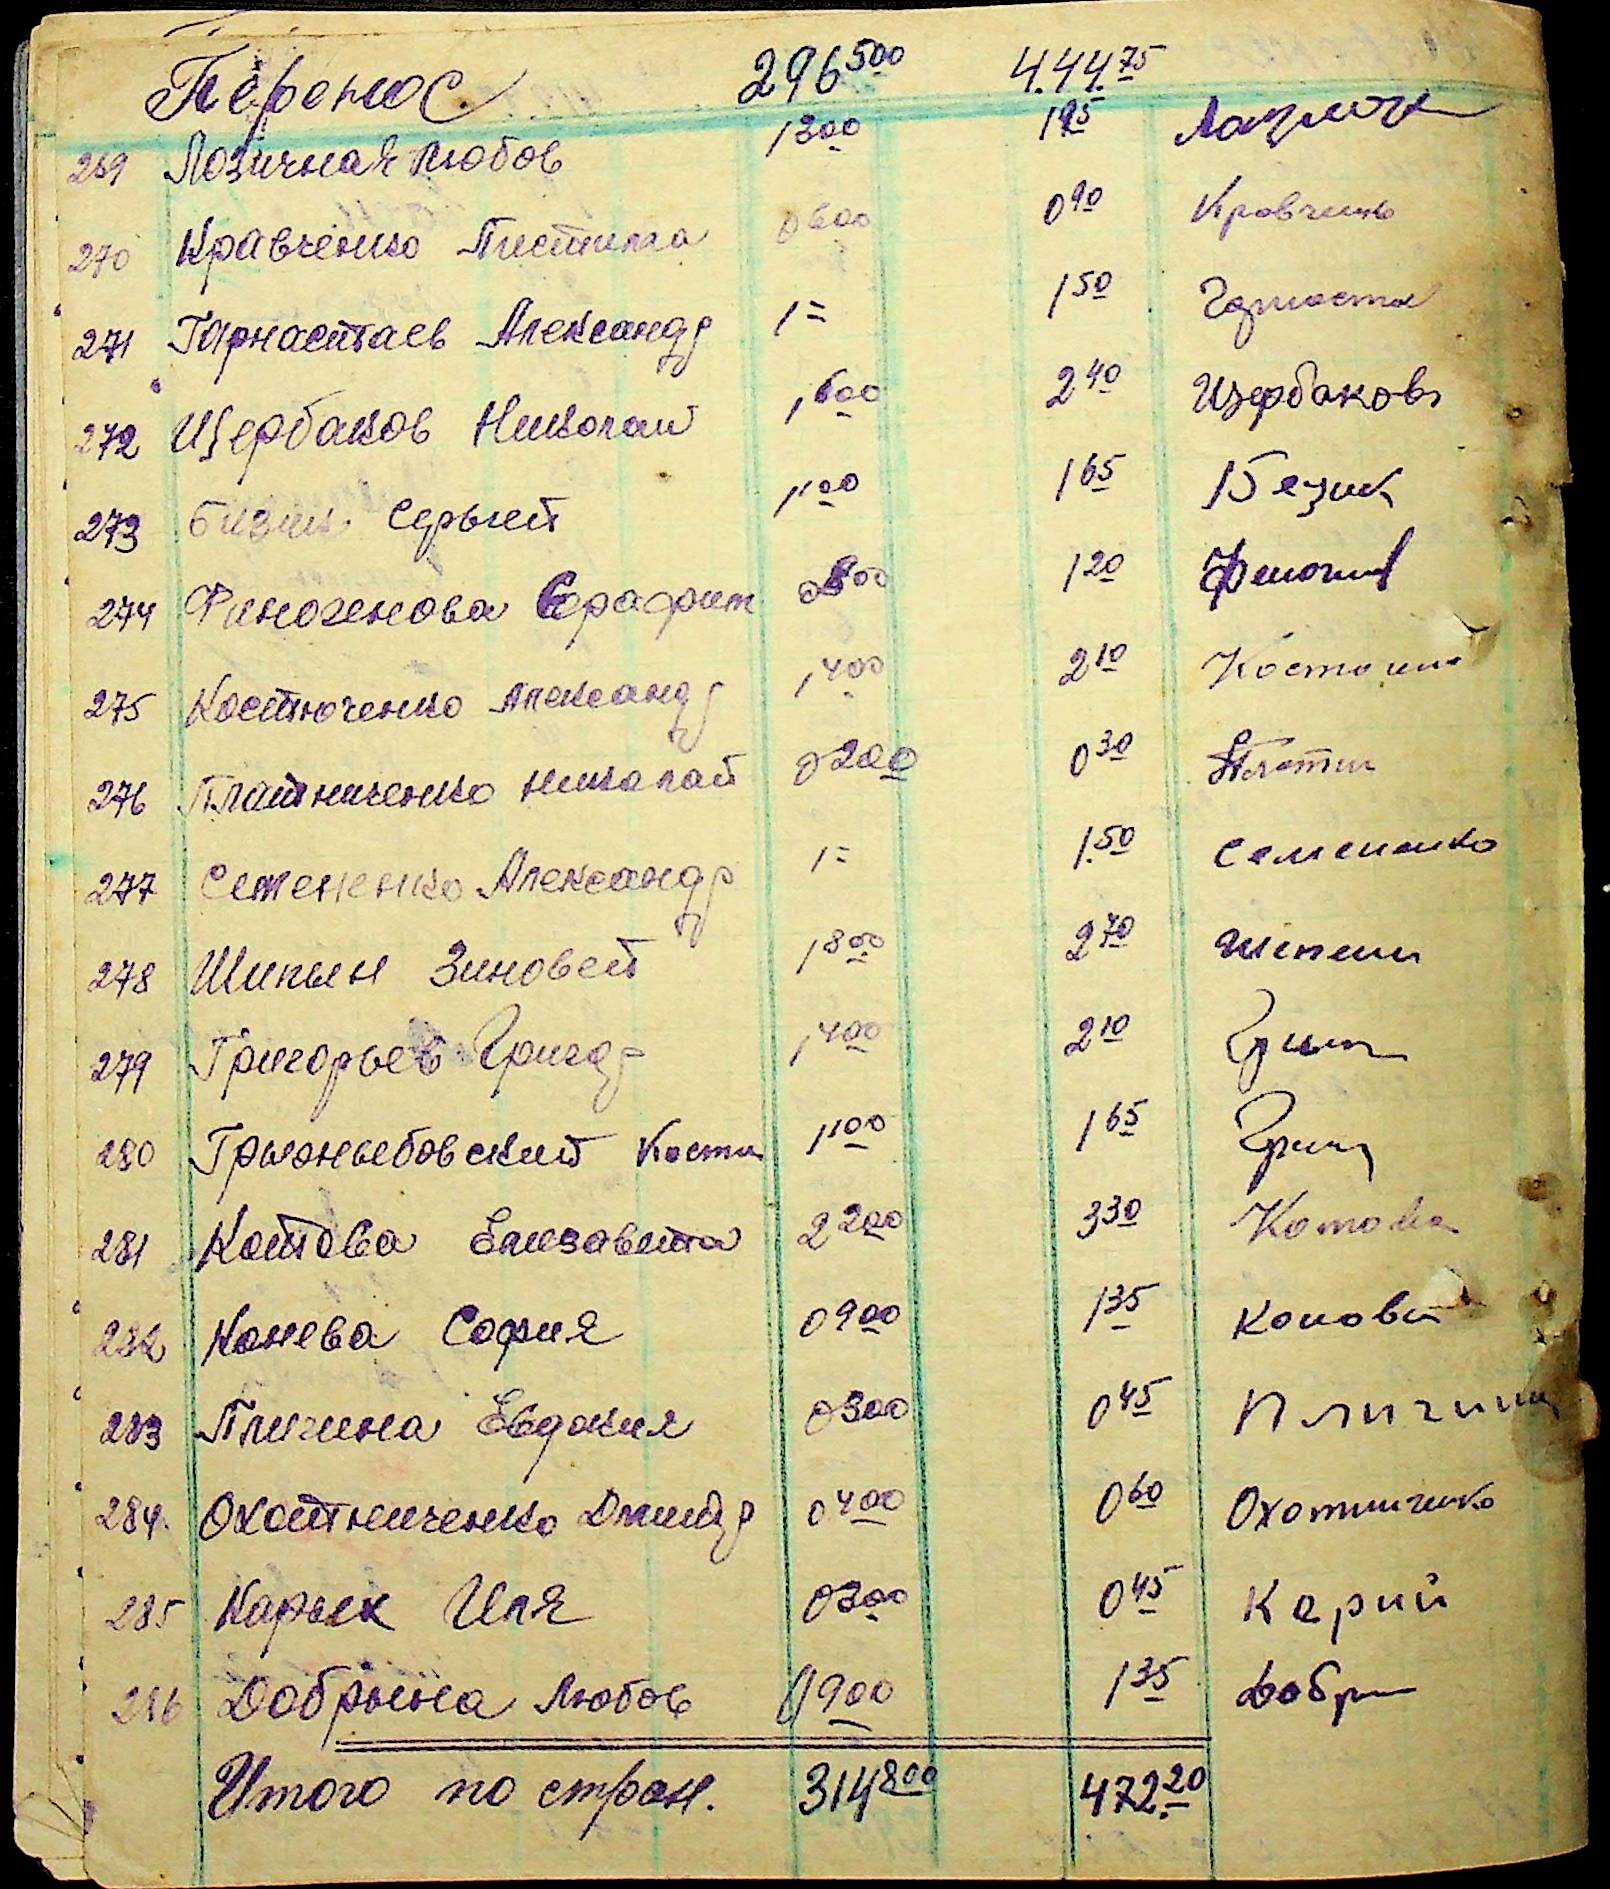 Перенос 296 500 444.75
269 Лозичная Любов 1 300 1 95
270 Кравченко Пистина 0 600 0 90 Кравченко
271 Гарнастаев Александр 1 = 1 50
272 Щербаков Николай 1 600 2 40 Щербаков
273 Бизик Сергей 1 100 1 65 Безик
274 Финогенова Серафим 0 800 1 20
275 Костюченко Александр 1 400 2 10
276 Платниченко Николай 0 200 0 30
277 Семененко Александр 1 = 1.50 Семененко
278 Шипын Зиновей 1 800 2 70 Шепеин
279 Григорьев Григор 1 400 2 10
280 Грыжныбовский Кости 1 100 1 65
281 Котова Елизавета 2 200 3 30 Котова
282 Конева София 0 900 1 35 Конова
283 Пличина Евдокия 0 300 0 45 Пличина
284 Охотниченко Дмитр 0 400 0 60 Охотниченко
285 Карык Иля 0 300 0 45 Карий
286 Добрынна Любов 0 900 1 35 Добри
Итого по стран. 314 800 472.20